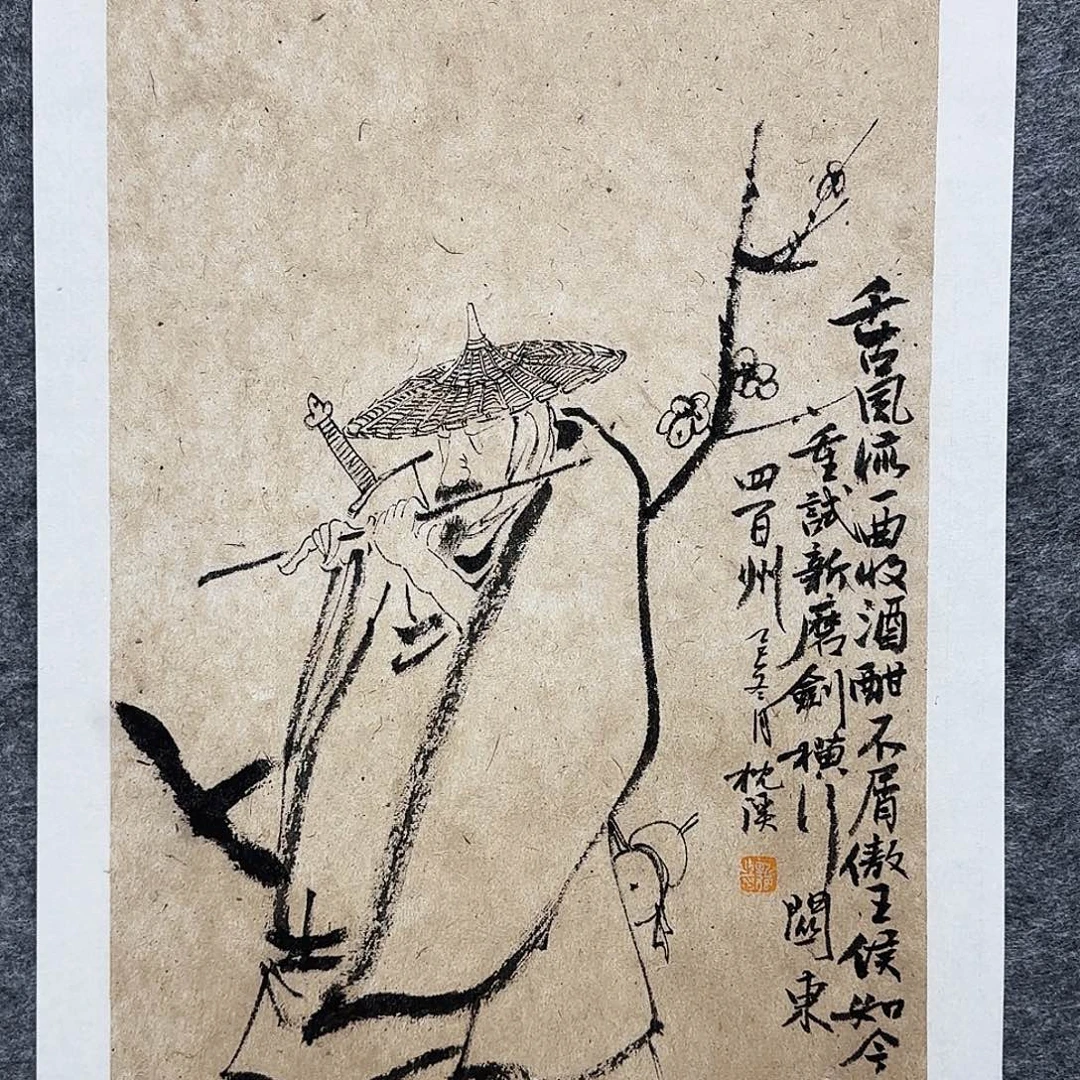 千古風流一曲收酒酣不屑傲王侯如今
重試新磨劍橫行關東
四百州
乙巳冬月枕溪